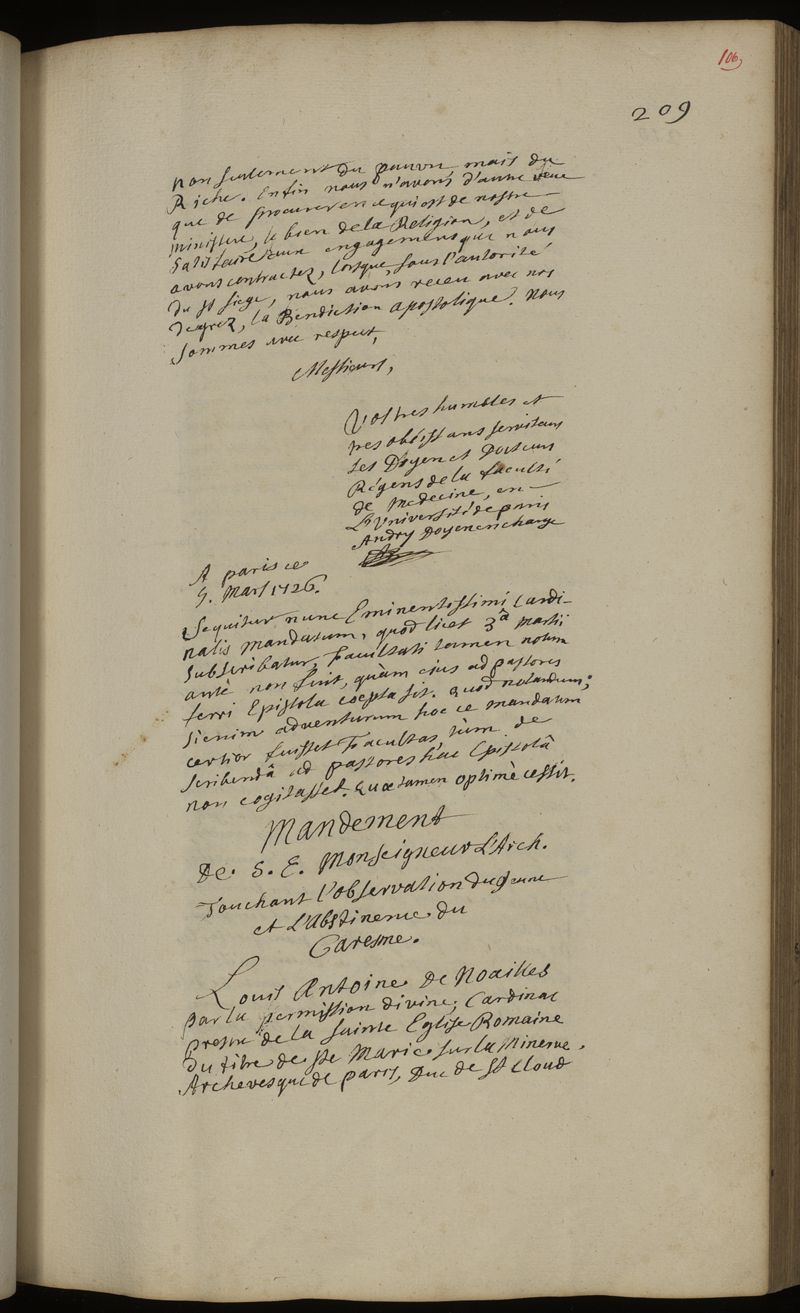 106,
209
non seulement du pauvre mais du
Riche. Enfin nous n'avons d'autre veue
que de procurer en ce qui est de nostre
ministere, le bien de la Religion, et de
Satisfaire aux engagemens que nous
avons contractez, lorsque sous l'autorité
du St siege, nous avons receu avec nos
degrez, la Benediction apostolique. Nous
sommes avec respect,
Messieurs,
Vos tres humbles et
tres obeissans serviteurs
les Doyen et Docteurs
Régens de la faculté
de Medecine, en
L'Université de paris
Andry Doyen en charge
A paris ce
9. Mars 1726.
Sequitur nunc Eminentissimi Cardi-
nalis mandatum, quod licet 3â martii
subscribatur, Facultati tamen notum
antè non fuit, quàm ejus ad pastores
ferri Epistola coepta sit. Quod notandum;
si enim adventurum hoc ce mandatum
certior fuisset Facultas, tùm de
scribendâ ad pastores hac Epistolâ
non cogitasset. Quae tamen optimè cessit.
Mandement
De. S. E. Monseigneur L'Arch.
Touchant l'observation du Jeune
et L'Abstinence du
Caresme.
Louis Antoine De Noailles
par la permission divine, Cardinal
prestre de la sainte Eglise Romaine
du titre de Ste Marie sur la Minerve,
Archevesque de paris, Duc de St Cloud